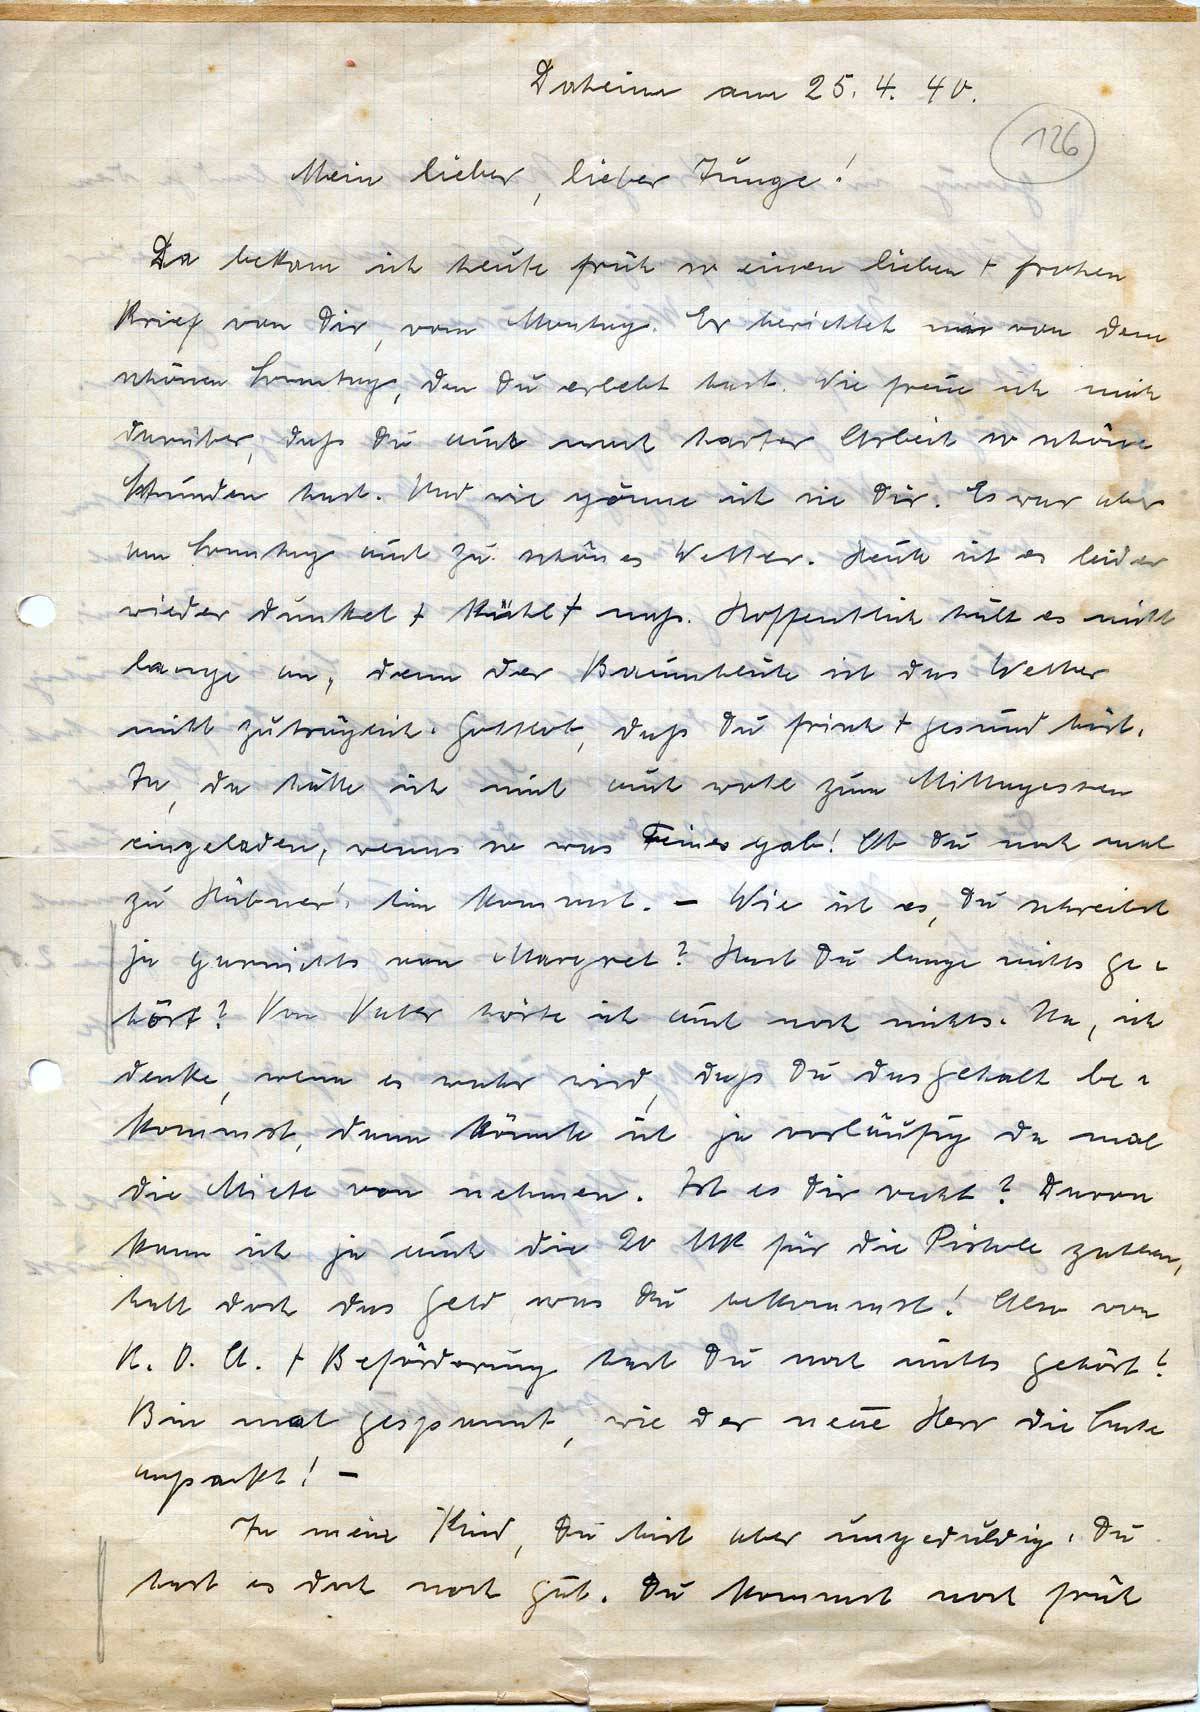 Daheim am 25. 4. 40.
126
Mein lieber, lieber Junge!
Da bekam ich heute früh so einen lieben + frohen
Brief von Dir, vom Montag. Er berichtet mir von dem
schönen Sonntag, den Du erlebt hast. Wie freue ich mich
darüber, daß Du auch nach harter Arbeit so schöne
Stunden hast. Und wie gönne ich sie Dir. Es war aber
am Sonntag auch zu schönes Wetter. Heute ist es leider
wieder dunkel + kühl + naß. Hoffentlich hält es nicht
lange an, denn der Baumblüte ist das Wetter
nicht zuträglich. Gottlob, daß Du frisch + gesund bist.
Ja, da hätte ich mich auch wohl zum Mittagessen
eingeladen, wenns so was Feines gab! Ob Du noch mal
zu Hübner's hin kommst. – Wie ist es, Du schreibst
ja garnichts von Margret? Hast Du lange nichts ge-
hört? Von Vater hörte ich auch noch nichts. Na, ich
denke, wenn es wahr wird, daß Du das Gehalt be-
kommst, dann könnte ich ja vorläufig da mal
die Miete von nehmen. Ist es Dir recht? Davon
kann ich ja auch die 20 MK für die Pistole zahlen,
halt doch das Geld was Du bekommst! Also von
K. O. A. + Beförderung hast Du noch nichts gehört?
Bin mal gespannt, wie der neue Herr die Sache
anpackt! –
Ja mein Kind, Du bist aber ungeduldig. Du
hast es doch noch gut. Du kommst noch früh